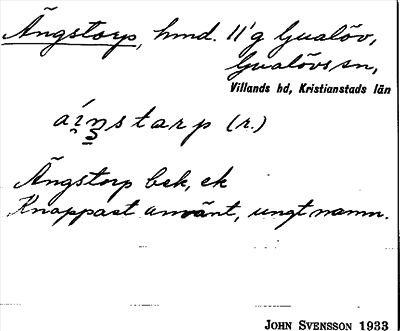 Ängstorp, hmd. 11'g Gualöv,
Gualövs sn,
Villands hd, Kristianstads län
starp (r.)
Ängstorp bek, ek
Knappast använt, ungt namn.
JOHN SVENSSON 1933